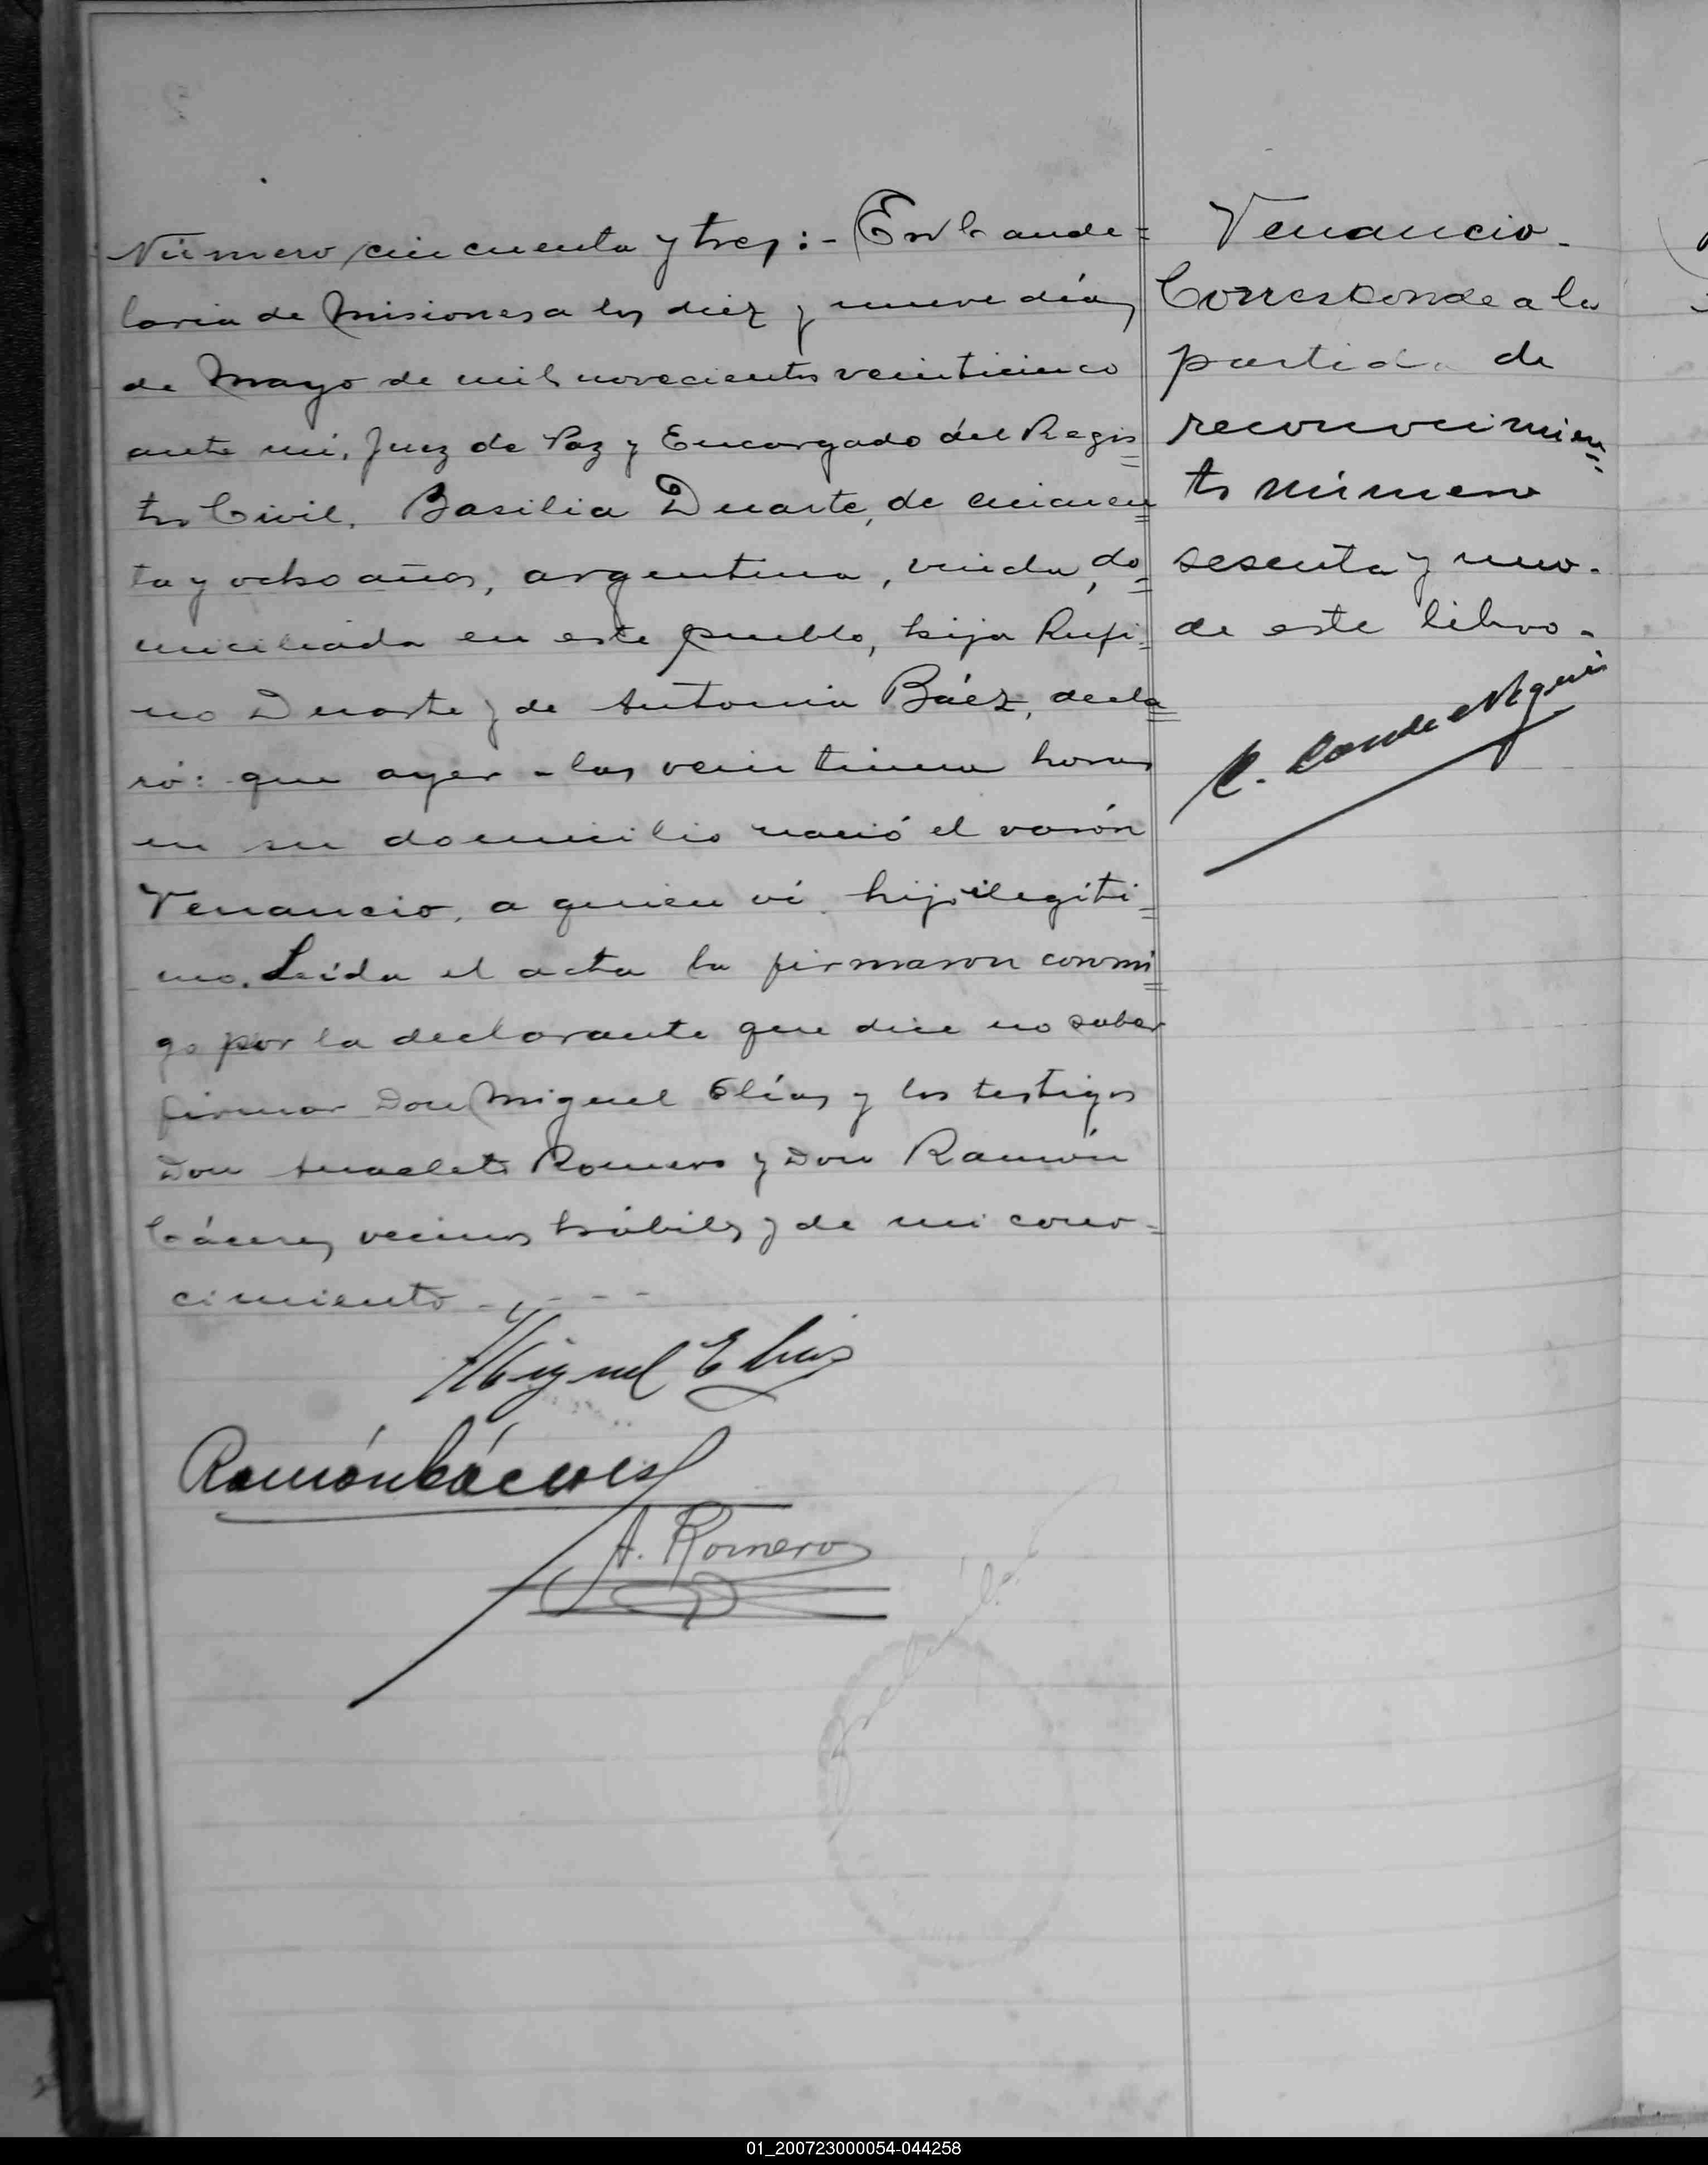 Número cincuenta y tres:- En Cande=
laria de Misiones a los diez y nueve días
de Mayo de mil novecientos veinticinco
ante mí, Juez de Paz y Encargado del Regis=
tro Civil, Basilia Duarte, de cincuen=
ta y ocho años, argentina, viuda, do=
miciliada en este pueblo, hija Rufi=
no Duarte y de Antonia Báez, decla=
ró: que ayer a las veintiuna horas
en su domicilio nació el varón
Venancio, a quien ví, hijo ilegíti=
mo. Leída el acta la firmaron conmi=
go por la declarante que dice no saber
firmar Don Miguel Elías y los testigos
Don Anacleto Romero y Don Ramón
Cáceres, vecinos hábiles y de mi cono=
cimiento - - - -
Miguel Elias
Ramón Cáceres
A. Romero
Venancio.
Corresponde a la
partida de
reconocimien=
to número
sesenta y uno.
de este libro.
01_200723000054-044258